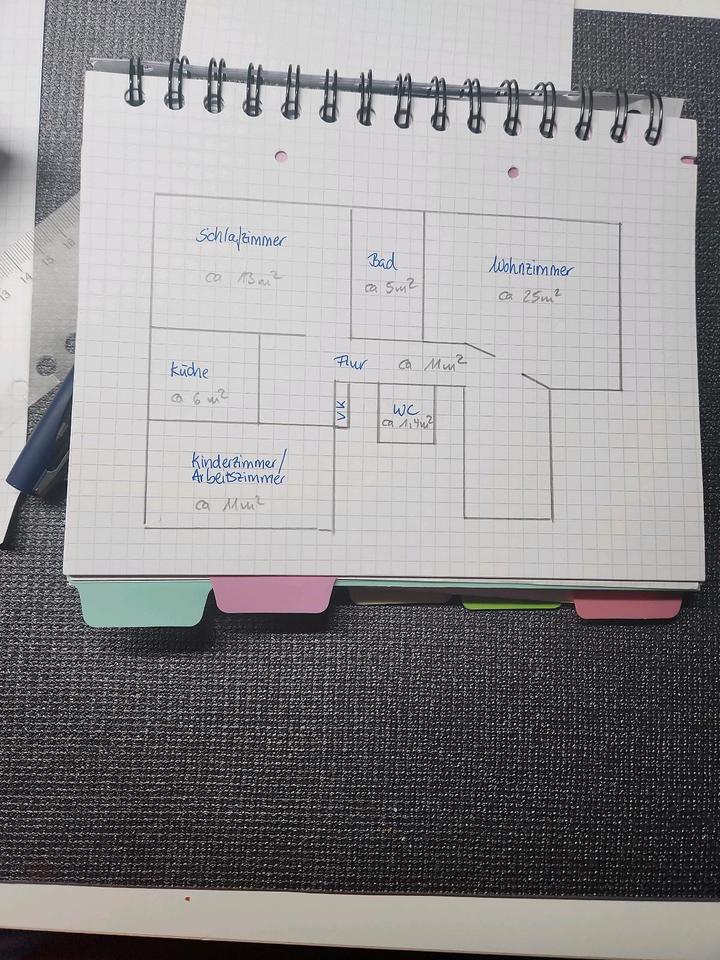 Schlafzimmer
ca 13m²
Bad
ca 5m²
Wohnzimmer
ca 25m²
Flur
ca 11m²
Küche
ca 6 m²
VK
WC
ca 1,4m²
Kinderzimmer/
Arbeitszimmer
ca 11m²
13 14 15 16